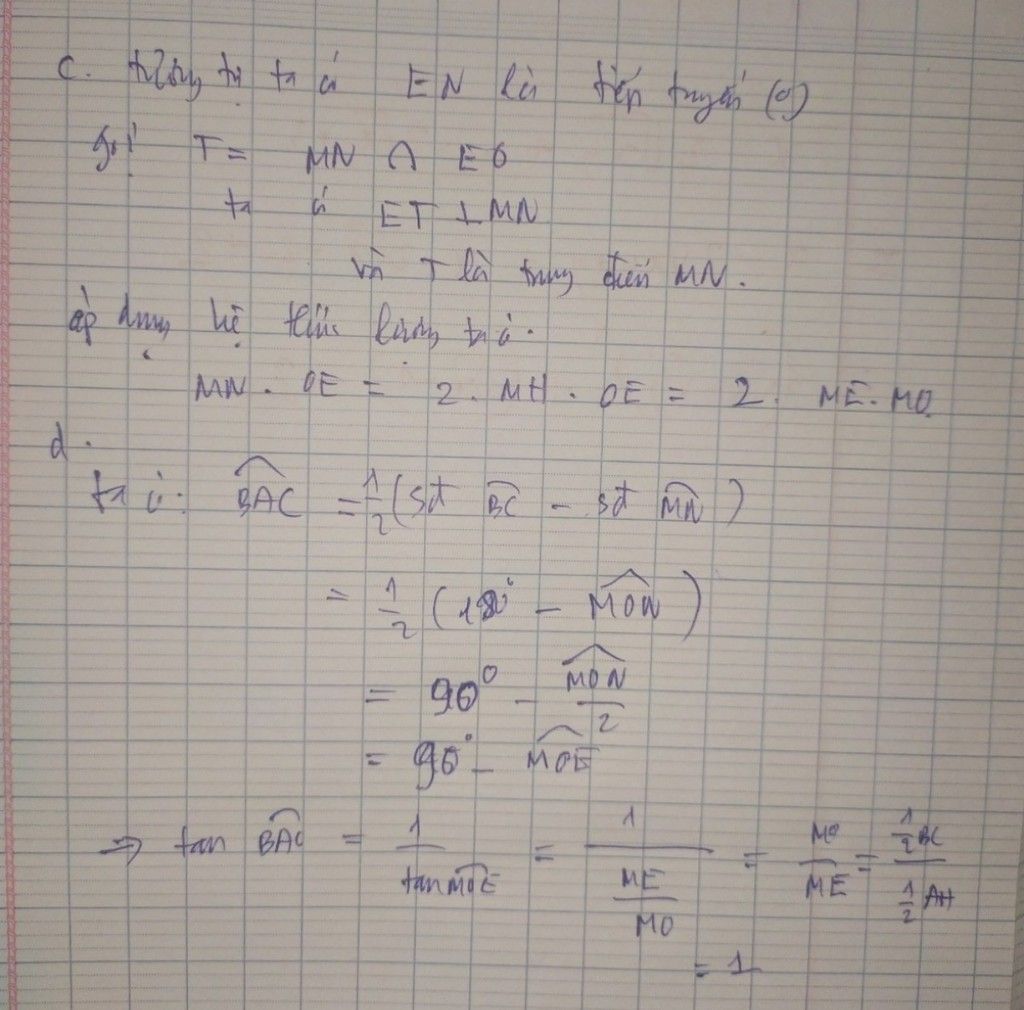 c. tương tự ta có EN là tiếp tuyến (O)
gọi T = MN ∩ EO
ta có ET ⊥ MN
và T là trung điểm MN.
áp dụng hệ thức lượng ta có.
MN . OE = 2 . MH . OE = 2 . ME . MO
d.
ta có: \widehat{BAC} = \frac{1}{2} (sđ \overset{\frown}{BC} - sđ \overset{\frown}{MN})
= \frac{1}{2} (180° - \widehat{MON})
= 90° - \frac{\widehat{MON}}{2}
= 90° - \widehat{MOE}
⇒ tan \widehat{BAC} = \frac{1}{tan \widehat{MOE}} = \frac{1}{\frac{ME}{MO}} = \frac{MO}{ME} = \frac{\frac{1}{2} BC}{\frac{1}{2} AH}
= 1